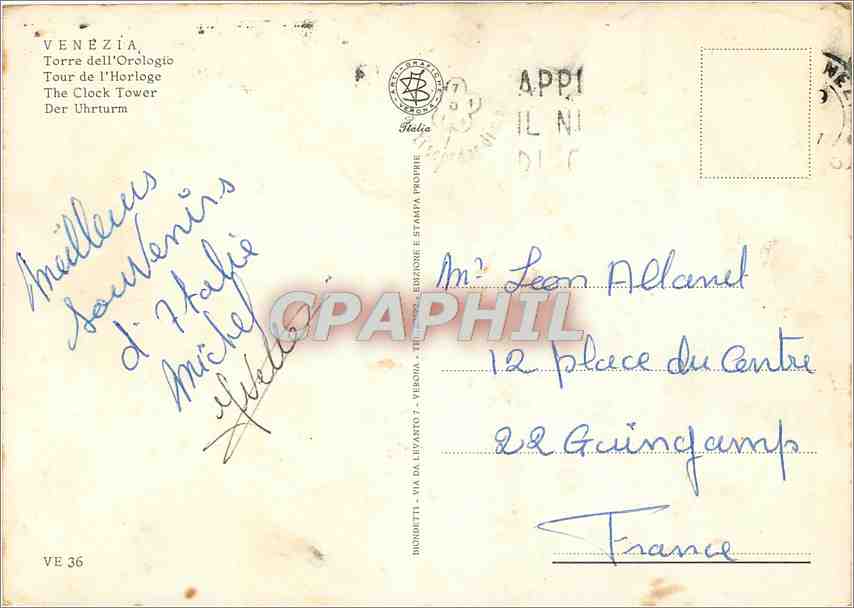 VENEZIA
Torre dell'Orologio
Tour de l'Horloge
The Clock Tower
Der Uhrturm
ARTI GRAFICHE
VERONA
Italia
APPI
IL NI
Meilleurs
souvenirs
d'Italie
Michel
Yvette
BIONDETTI - VIA DA LEVANTO 7 - VERONA - EDIZIONE E STAMPA PROPRIE
CPAPHIL
Mr Leon Allanet
12 place du Centre
22 Guingamp
France
VE 36